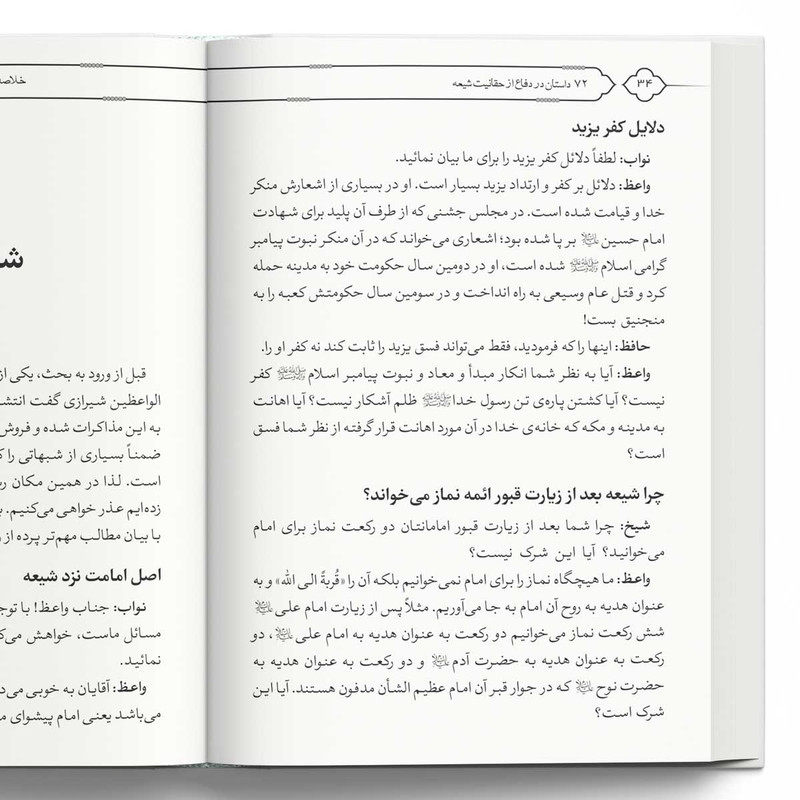 ۳۴
۷۲ داستان در دفاع از حقانیت شیعه
دلایل کفر یزید
نواب: لطفاً دلائل کفر یزید را برای ما بیان نمائید.
واعظ: دلائل بر کفر و ارتداد یزید بسیار است. او در بسیاری از اشعارش منکر
خدا و قیامت شده است. در مجلس جشنی که از طرف آن پلید برای شهادت
امام حسین علیه‌السلام بر پا شده بود؛ اشعاری می‌خواند که در آن منکر نبوت پیامبر
گرامی اسلام ﷺ شده است، او در دومین سال حکومت خود به مدینه حمله
کرد و قتل عام وسیعی به راه انداخت و در سومین سال حکومتش کعبه را به
منجنیق بست!
حافظ: اینها را که فرمودید، فقط می‌تواند فسق یزید را ثابت کند نه کفر او را.
واعظ: آیا به نظر شما انکار مبدأ و معاد و نبوت پیامبر اسلام ﷺ کفر
نیست؟ آیا کشتن پاره‌ی تن رسول خدا ﷺ ظلم آشکار نیست؟ آیا اهانت
به مدینه و مکه که خانه‌ی خدا در آن مورد اهانت قرار گرفته از نظر شما فسق
است؟
چرا شیعه بعد از زیارت قبور ائمه نماز می‌خواند؟
شیخ: چرا شما بعد از زیارت قبور امامانتان دو رکعت نماز برای امام
می‌خوانید؟ آیا این شرک نیست؟
واعظ: ما هیچگاه نماز را برای امام نمی‌خوانیم بلکه آن را «قُربةً الی الله» و به
عنوان هدیه به روح آن امام به جا می‌آوریم. مثلاً پس از زیارت امام علی علیه‌السلام
شش رکعت نماز می‌خوانیم دو رکعت به عنوان هدیه به امام علی علیه‌السلام، دو
رکعت به عنوان هدیه به حضرت آدم علیه‌السلام و دو رکعت به عنوان هدیه به
حضرت نوح علیه‌السلام که در جوار قبر آن امام عظیم الشأن مدفون هستند. آیا این
شرک است؟
خلاصه
قبل از ورود به بحث، یکی از
الواعظین شیرازی گفت
به این مذاکرات شده و فروش
ضمناً بسیاری از شبهاتی را
است. لذا در همین مکان
زده‌ایم عذر خواهی می‌کنیم.
با بیان مطالب مهم‌تر پرده از
اصل امامت نزد شیعه
نواب: جناب واعظ! با
مسائل ماست، خواهش
نمائید.
واعظ: آقایان به خوبی
می‌باشد یعنی امام پیشوای